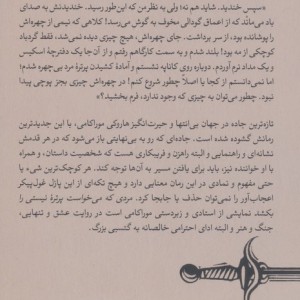 «سپس خندید. شاید هم نه؛ ولی به نظر من که این‌طور رسید. خندیدنش به صدای
باد می‌ماند که از اعماق گودالی مخوف به گوش می‌رسد! کلاهی که نیمی از چهره‌اش
را پوشانده بود، از سر برداشت. جای چهره‌اش، هیچ چیزی دیده نمی‌شد، فقط گردباد
کوچکی از مه بود! بلند شدم و به سمت کارگاهم رفتم و از آن‌جا یک دفترچهٔ اسکیس
و یک مداد نرم آوردم. دوباره روی کاناپه نشستم و آمادهٔ کشیدن پرترهٔ مرد بی‌چهره شدم؛
اما نمی‌دانستم از کجا یا اصلاً چطور شروع کنم! در چهره‌اش چیزی بجز پوچی پیدا
نبود. چطور می‌توان به چیزی که وجود ندارد، فرم بخشید؟»
تازه‌ترین جاده در جهان بی‌انتها و حیرت‌انگیز هاروکی موراکامی، با این جدیدترین
رمانش گشوده شده است. جاده‌ای که رو به بی‌نهایتی باز می‌شود که در هر قدمش
نشانه‌ای و راهنمایی و البته راهزن و فریبکاری هست که شخصیت داستان، و همراه
با او خواننده نیز، باید برای یافتن مسیر به آن‌ها توجه کند. هر کوچک‌ترین شیء یا
حتی مفهوم و نمادی در این رمان معنایی دارد و هیچ تکه‌ای از این پازل غول‌پیکر
اعجاب‌آور را نمی‌توان حذف یا جابجا کرد. مردی که می‌خواست پرترهٔ نیستی را
بکشد نمایشی از استادی و زبردستی موراکامی است در روایت عشق و تنهایی،
جنگ و هنر و البته ادای احترامی خالصانه به گتسبی بزرگ.